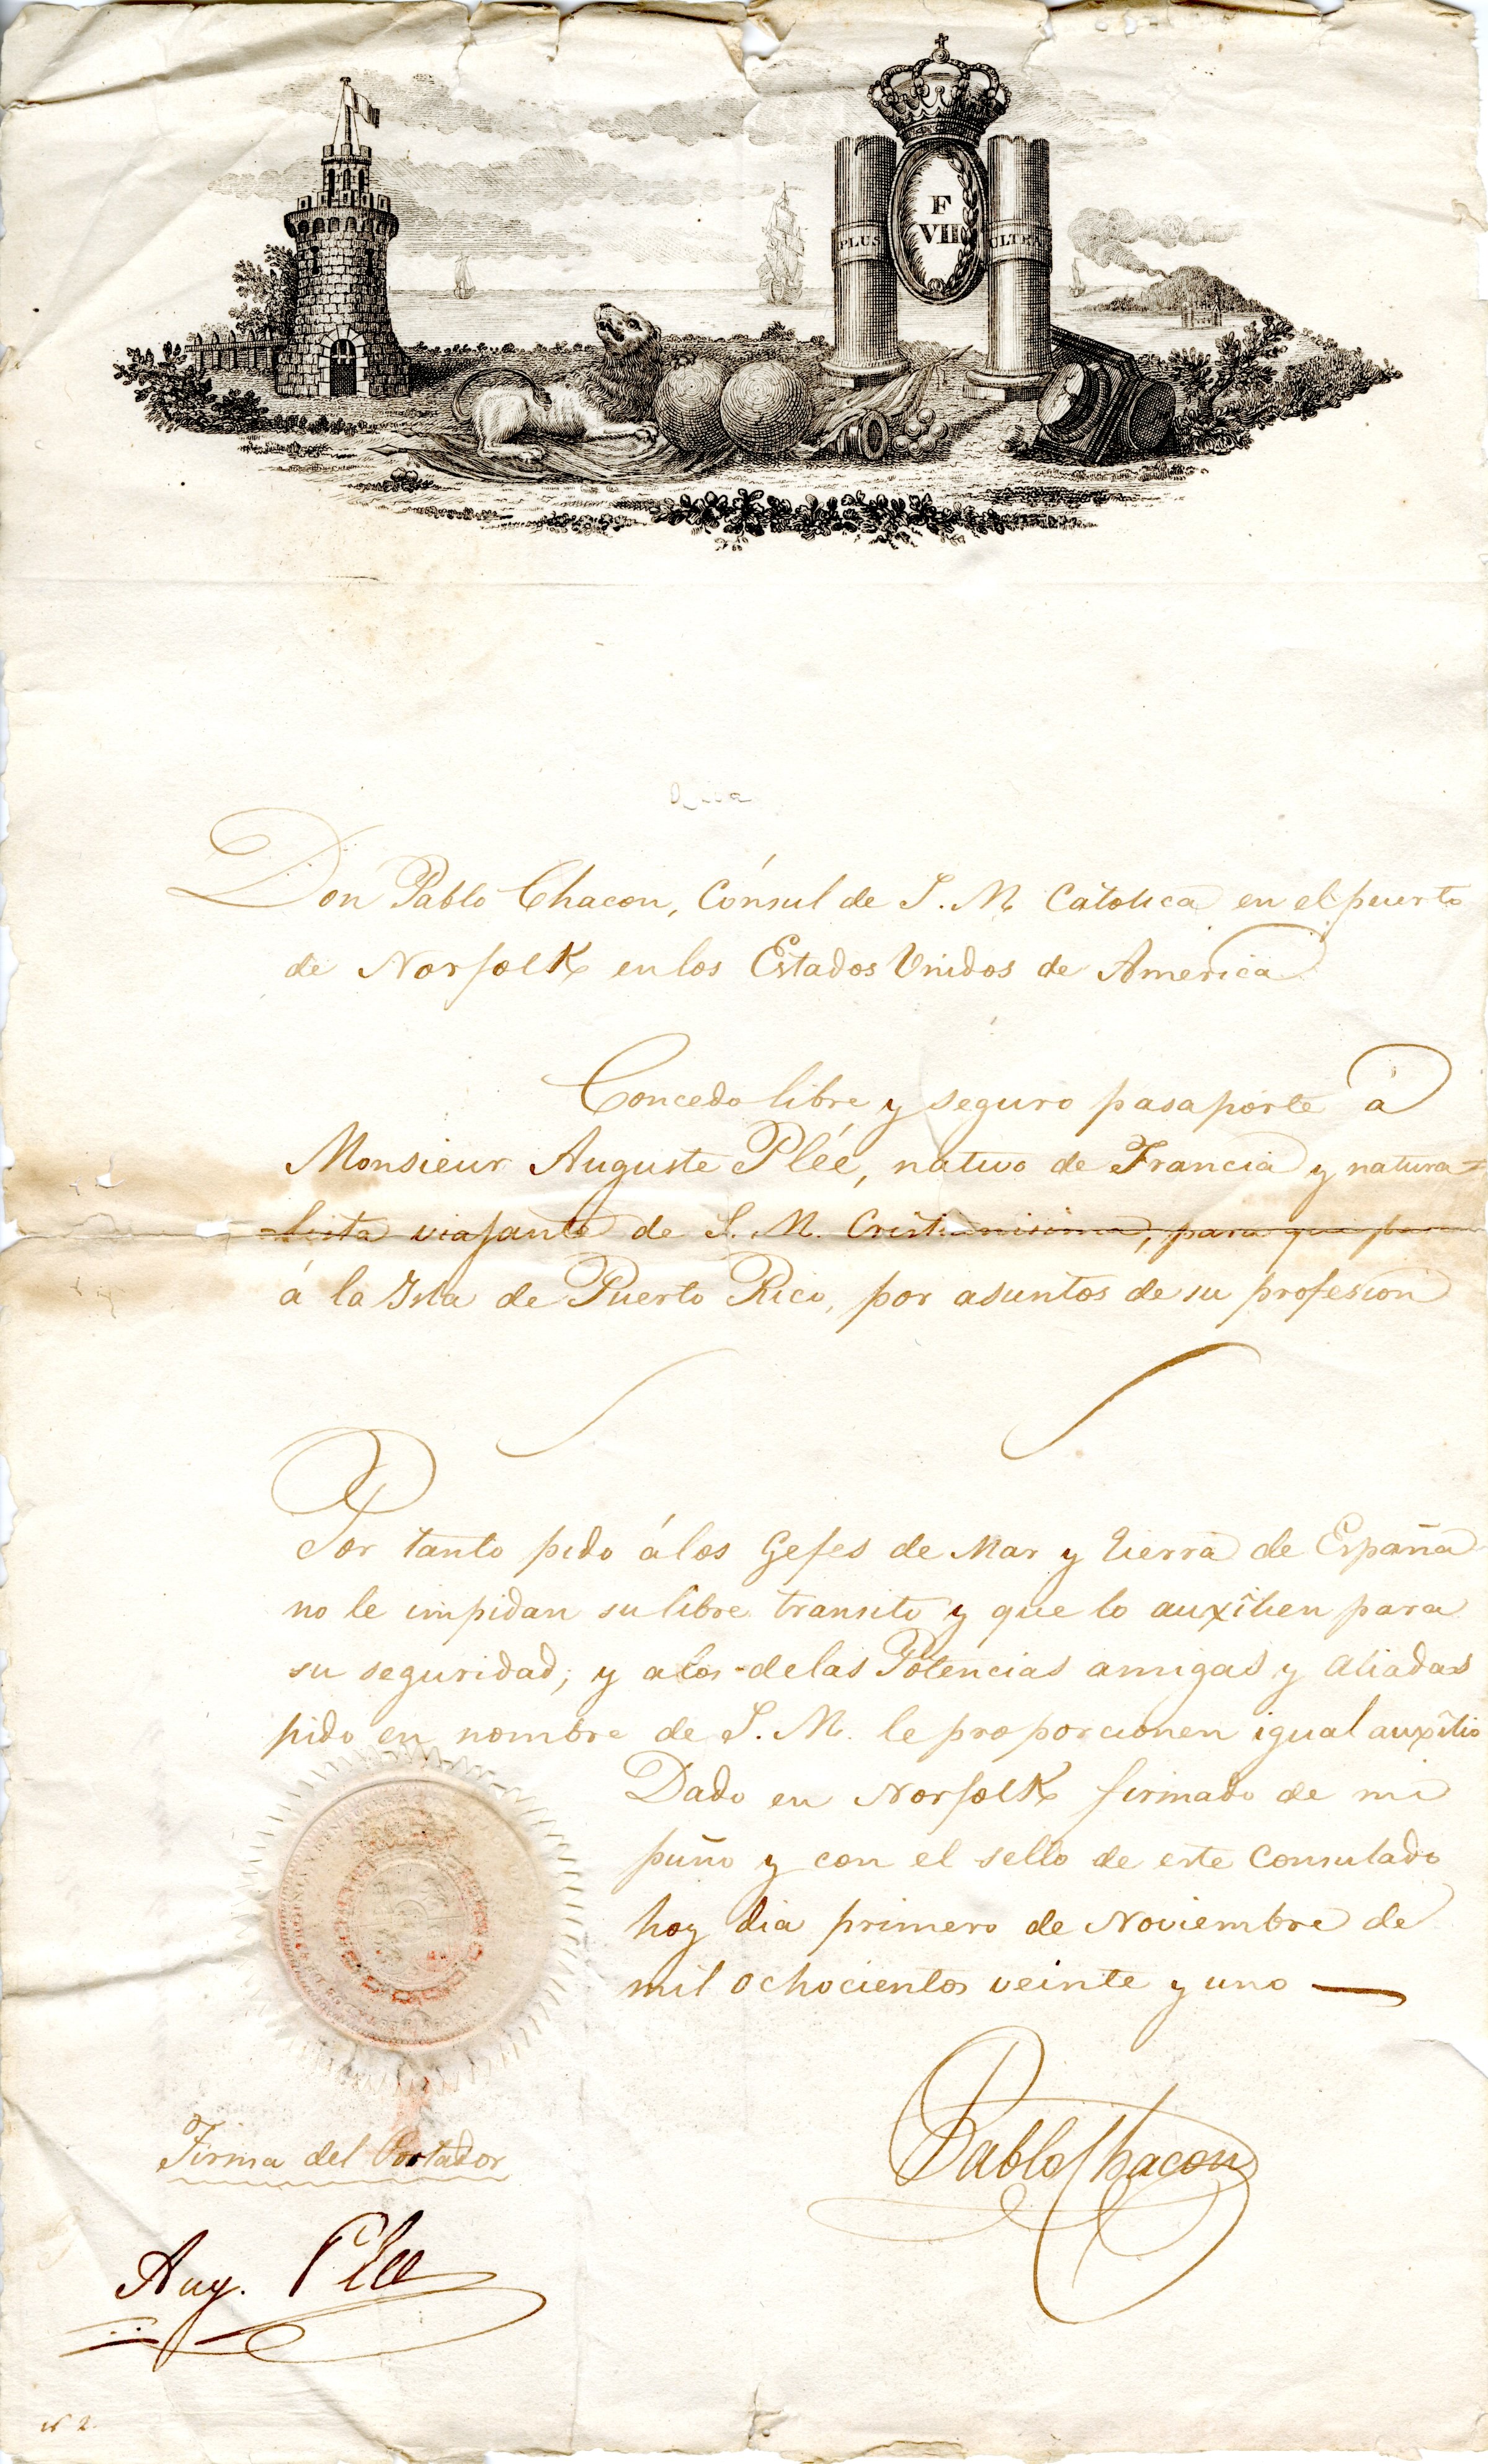 F
VII
PLUS ULTRA
Don Pablo Chacon, Cónsul de S. M. Catolica en el puerto
de Norfolk en los Estados Unidos de America
Concedo libre y seguro pasaporte à
Monsieur Auguste Plée, nativo de Francia y natura=
lista viajante de S. M. Cristianisima, para que pase
á la Isla de Puerto Rico, por asuntos de su profesion
Por tanto pido á los Gefes de Mar y tierra de España
no le impidan su libre transito y que lo auxilien para
su seguridad; y a los de las Potencias amigas y aliadas
pido en nombre de S. M. le proporcionen igual auxilio
Dado en Norfolk firmado de mi
puño y con el sello de este Consulado
hoy dia primero de Noviembre de
mil ochocientos veinte y uno —
Pablo Chacon
Firma del Portador
Aug. Plee